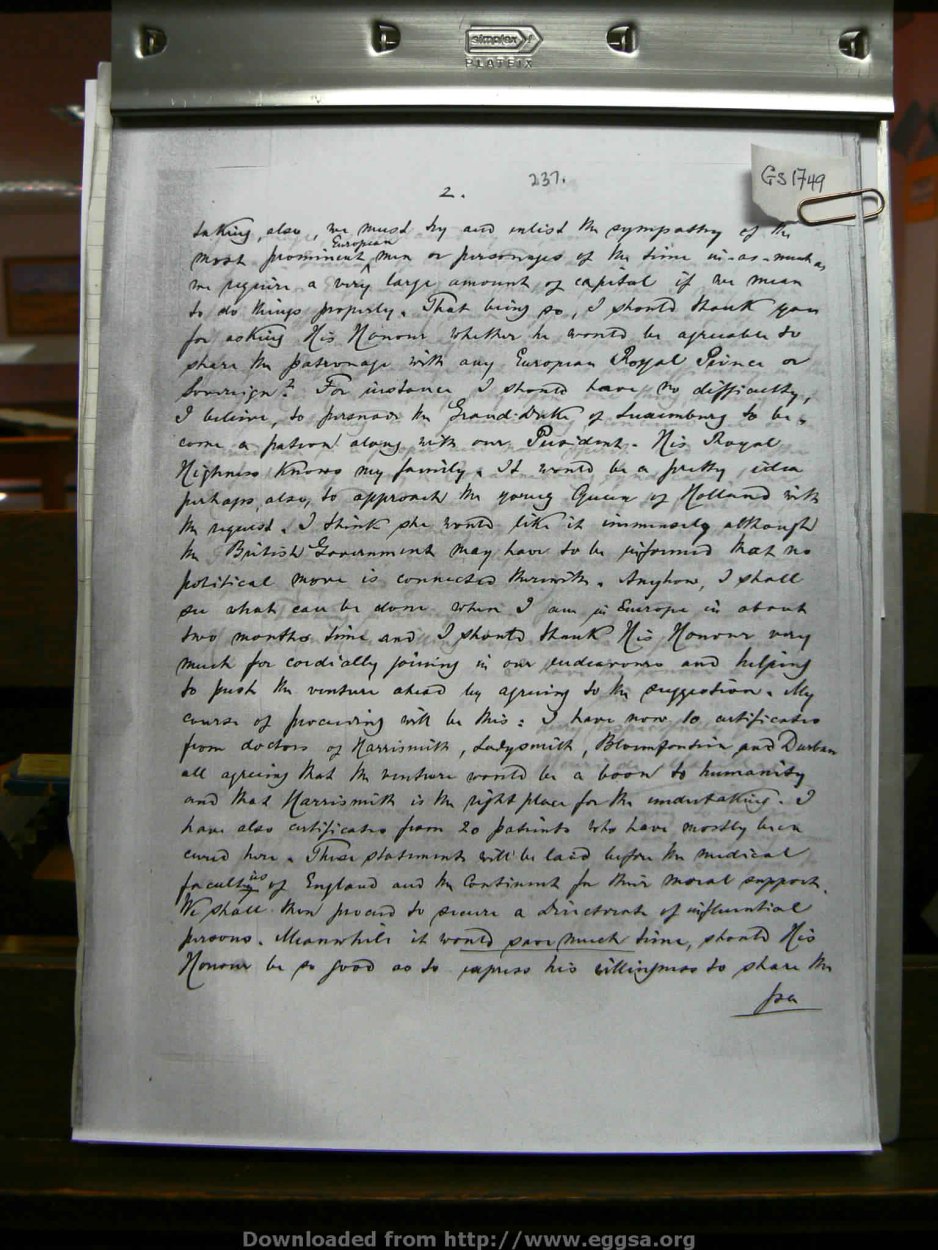 simplex
PLATFIX
GS 1749
237.
2.
taking, also, we must try and enlist the sympathy of the
European
most prominent men or personages of the time in-as-much as
we require a very large amount of capital if we mean
to do things properly. That being so, I should thank you
for asking His Honour whether he would be agreeable to
share the patronage with any European Royal Prince or
Sovereign? For instance I should have no difficulty,
I believe, to persuade the Grand-Duke of Luxemburg to be-
come a patron along with our President. His Royal
Highness knows my family. It would be a pretty idea
perhaps, also, to approach the young Queen of Holland with
the request. I think she would like it immensely although
the British Government may have to be informed that no
political move is connected therewith. Anyhow, I shall
see what can be done when I am in Europe in about
two months time and I should thank His Honour very
much for cordially joining in our endeavours and helping
to push the venture ahead by agreeing to the suggestion. My
course of proceeding will be this: I have now 10 certificates
from doctors of Harrismith, Ladysmith, Bloemfontein and Durban
all agreeing that the venture would be a boon to humanity
and that Harrismith is the right place for the undertaking. I
have also certificates from 20 patients who have mostly been
cured here. These statements will be laid before the medical
faculties of England and the Continent for their moral support.
We shall then proceed to secure a directorate of influential
persons. Meanwhile it would save much time, should His
Honour be so good as to express his willingness to share the
Downloaded from http://www.eggsa.org